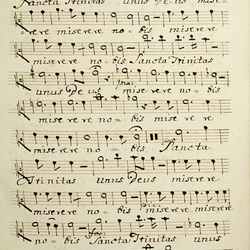 Sancta Trinitas unus Deus mise-
rere miserere no- bis miserere
miserere nobis Sancta Trinitas
unus Deus miserere
miserere no- bis miserere re
miserere nobis. Sancta
Trinitas unus Deus miserere
miserere no- bis miserere
no- bis Sancta Trinitas unus